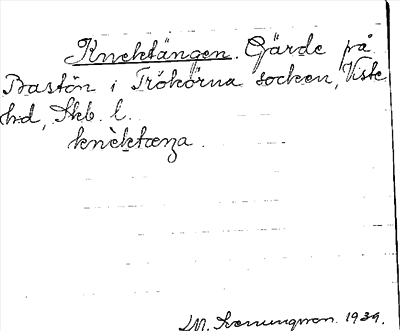 Knektängen. Gärde på
Bastön i Trökörna socken, Viste
hd, Skb. l.
knèktæŋa.
1939.